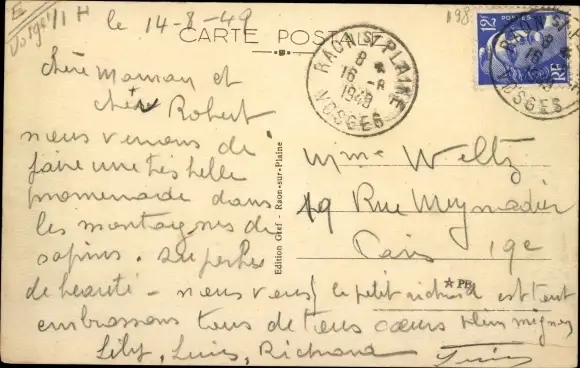 E
Vosges
le 14-8-49
CARTE POSTALE
RAON S/ PLAINE
8
16 -8
1949
VOSGES
12F
POSTES
RF
chère Maman et
cher Robert
nous venons de
faire une très belle
promenade dans
les montagnes de
sapins. superbes
de beauté - nous vous
embrassons tous de tous cœurs
Lily, Louis, Richard
Edition Gref - Raon-sur-Plaine
Mme Weltz
19 Rue Meynadier
Paris 19e
PB
le petit richard est tout
plein mignon